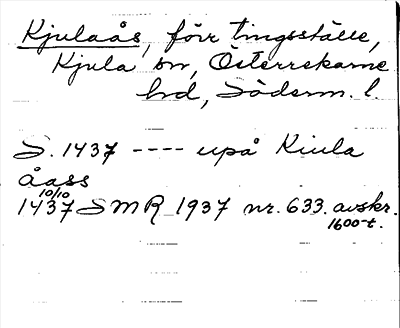 Kjulaås, förr tingsställe,
Kjula sn, Österrekarne
hd, Söderm. l.
S. 1437 ---- upå Kiula
åass
10/10
1437 SMR 1937 nr. 633. avskr.
1600-t.